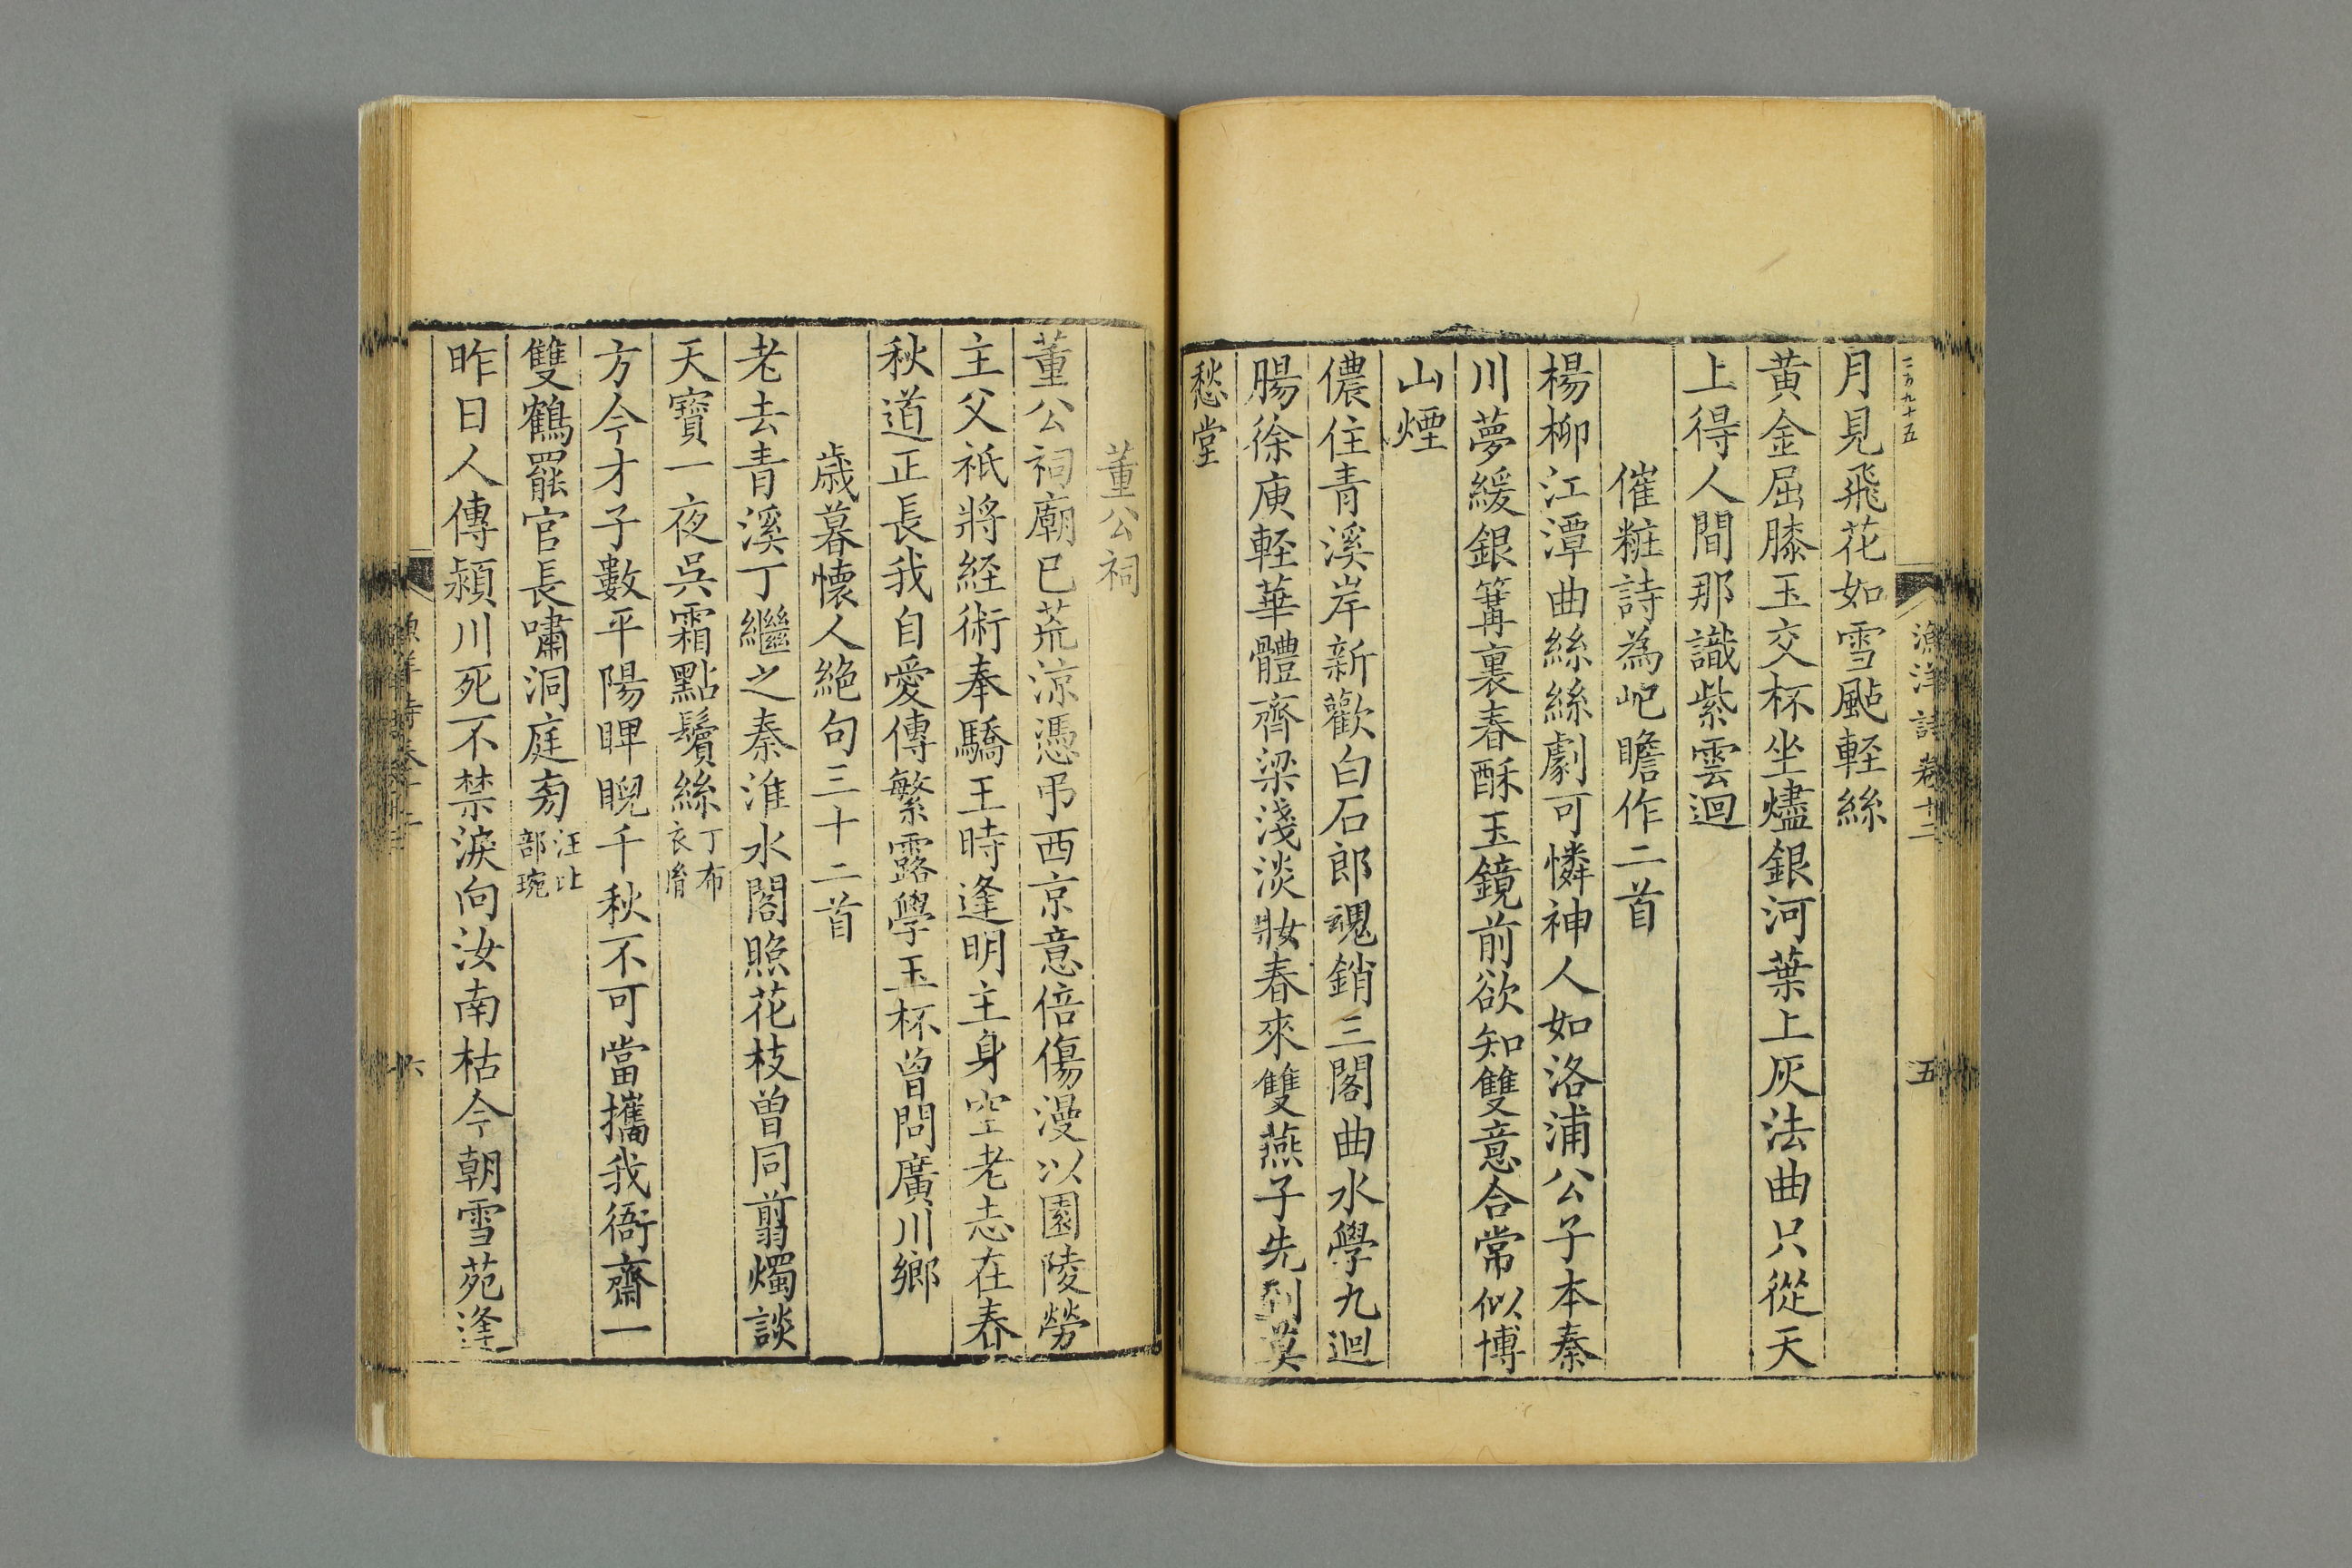 二百九十五
月見飛花如雪颭輕絲
黄金屈膝玉交杯坐燼銀河葉上灰法曲只從天
上得人間那識紫雲迴
催粧詩為屺瞻作二首
楊柳江潭曲絲絲劇可憐神人如洛浦公子本秦
川夢緩銀篝裏春酥玉鏡前欲知雙意合常似博
山煙
儂住青溪岸新歡白石郎魂銷三閣曲水學九迴
腸徐庾輕華體齊梁淺淡妝春來雙燕子先到莫
愁堂
漁洋詩卷十二
五
董公祠
董公祠廟已荒涼憑弔西京意倍傷漫以園陵勞
主父祇將経術奉驕王時逢明主身空老志在春
秋道正長我自愛傳繁露學玉杯曾問廣川鄉
歲暮懷人絶句三十二首
老去青溪丁繼之秦淮水閣照花枝曾同翦燭談
天寶一夜吳霜點鬢絲丁布衣胤
方今才子數平陽睥睨千秋不可當攜我衙齋一
雙鶴罷官長嘯洞庭㫄汪比部琬
昨日人傳潁川死不禁淚向汝南枯今朝雪苑逢
六